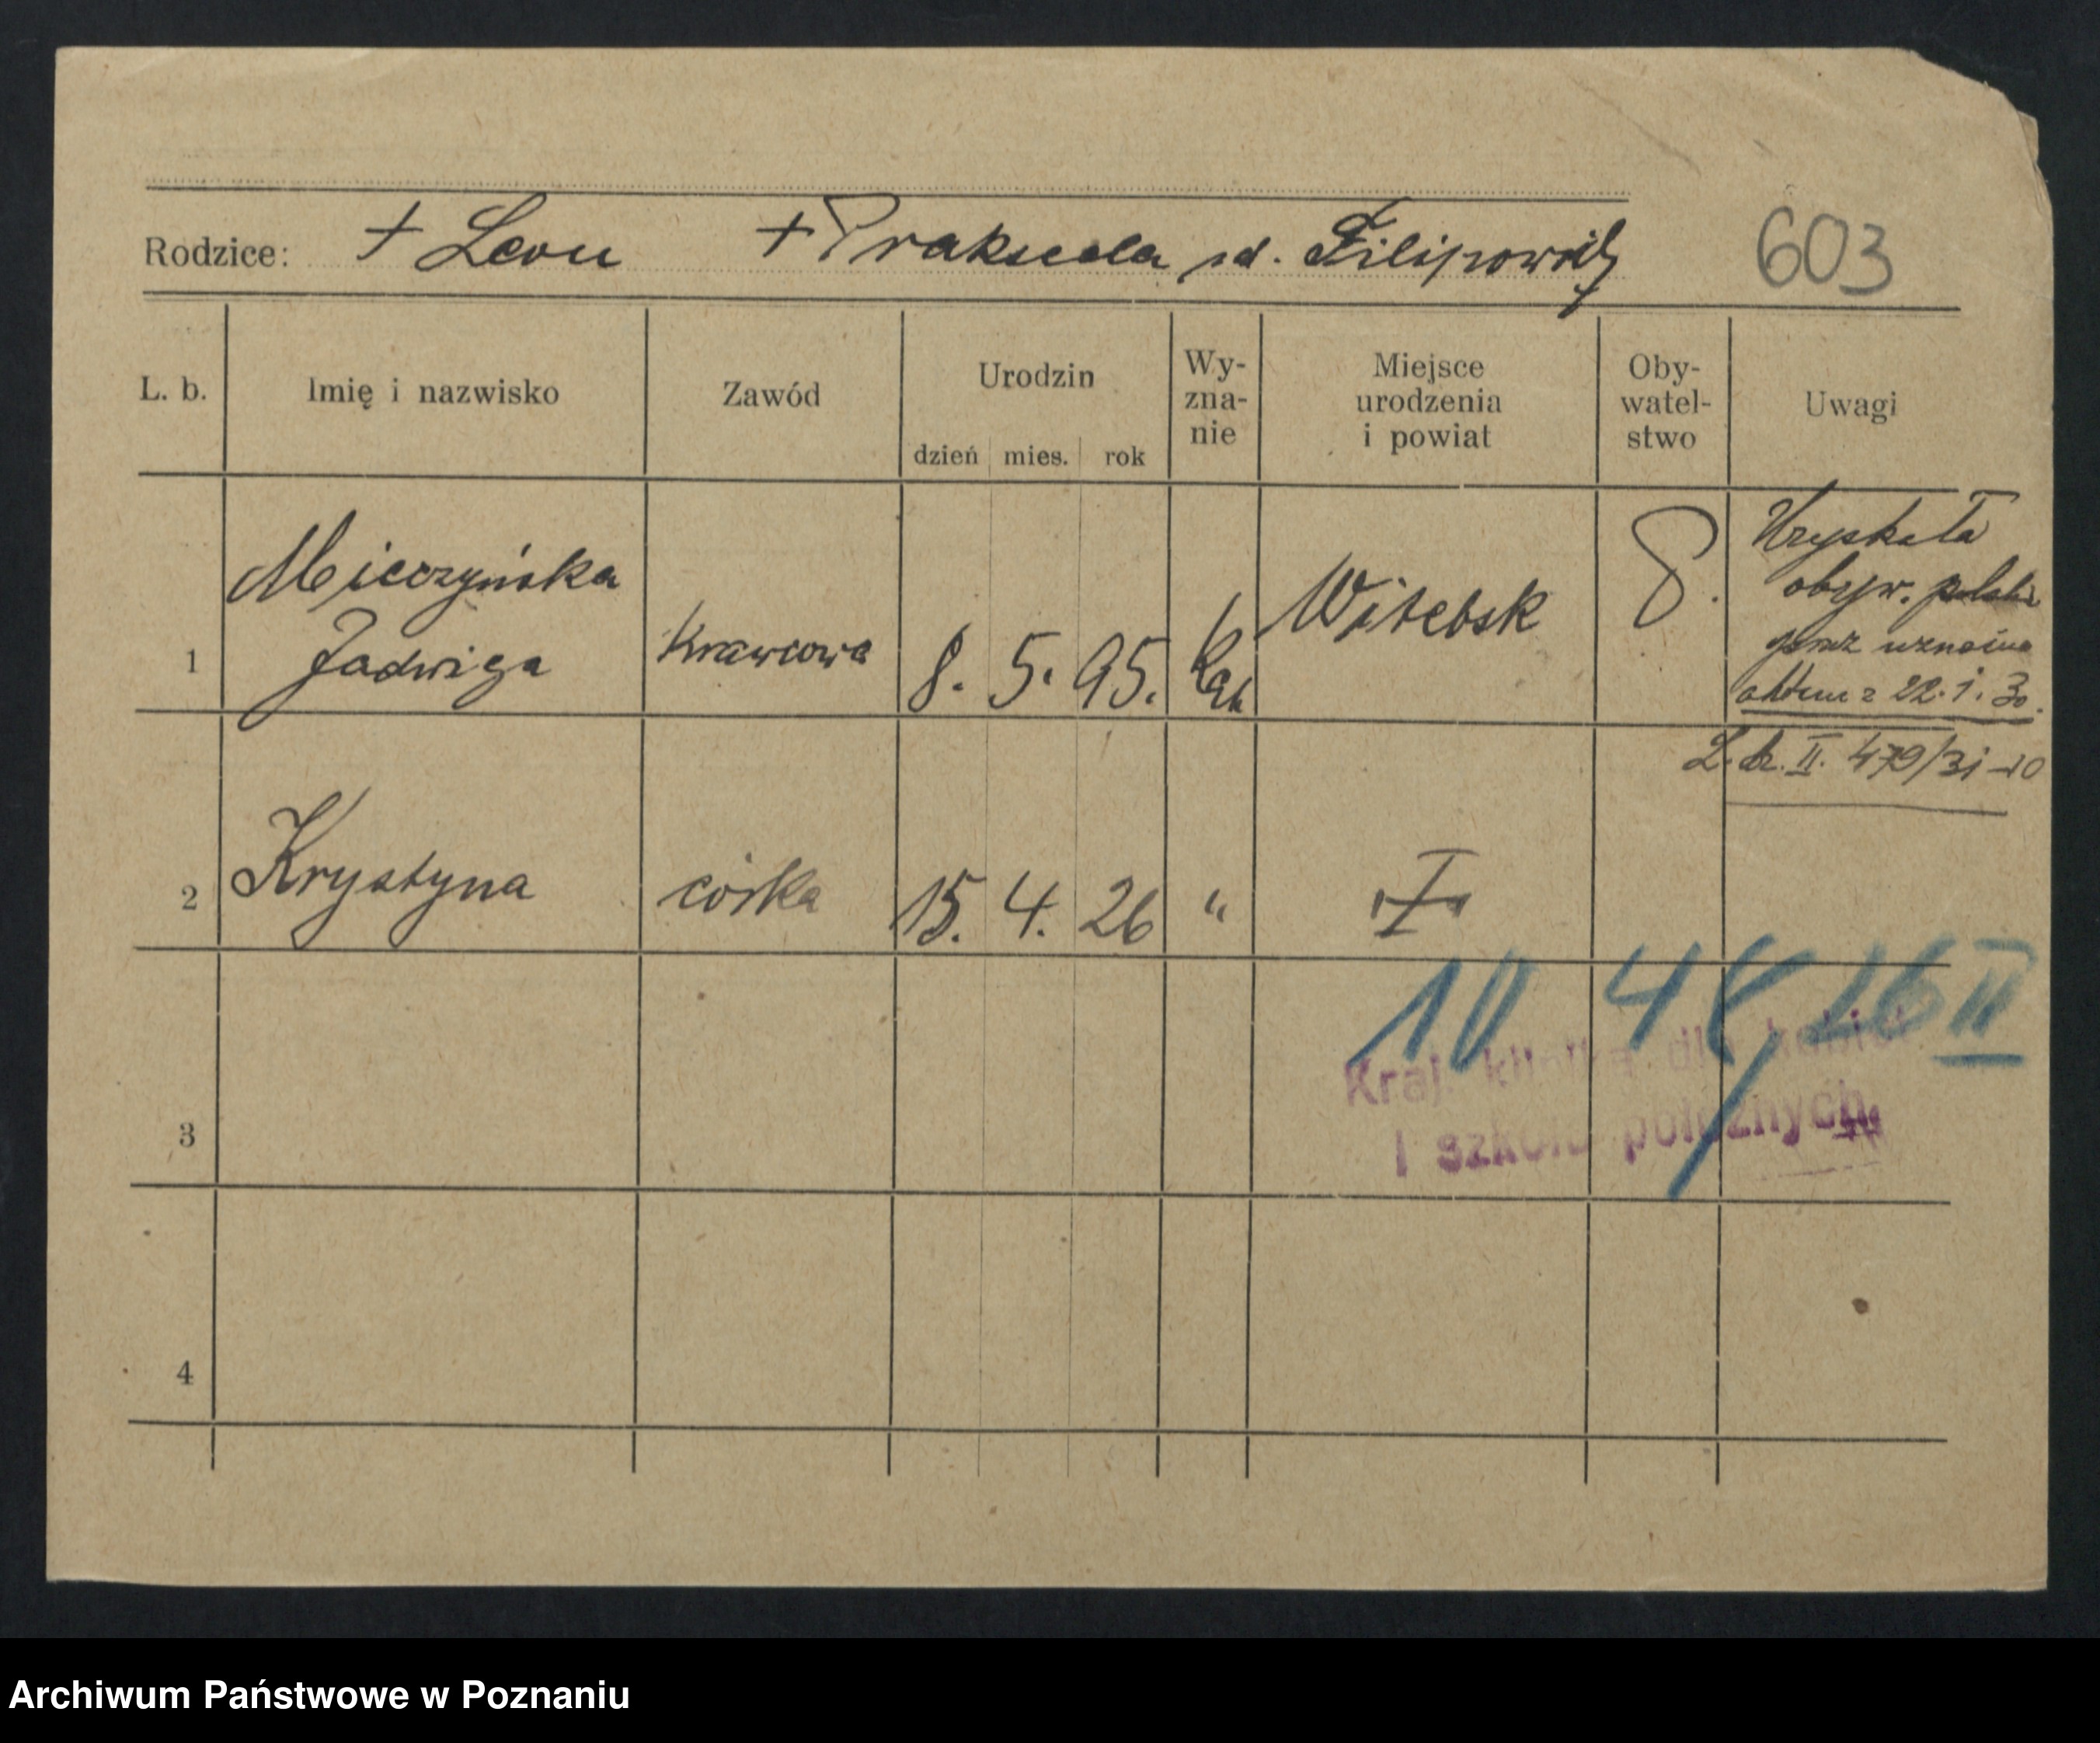 Rodzice: + Leon + Prakseda zd. Filipowicz
603
L. b. Imię i nazwisko Zawód Urodzin dzień mies. rok Wy-zna-nie Miejsce urodzenia i powiat Oby-watel-stwo Uwagi
Mieczyńska
1 Jadwiga Krawcowa 8. 5. 95. kat Witebsk P.
Uzyskała
obyw. polskie
przez uznanie
aktem z 22.1.30.
L. dz. II. 479/31
2 Krystyna córka 15. 4. 26 "
10 4
26 II
Kraj. klinika dla kobiet
i szkoła położnych
3
4
Archiwum Państwowe w Poznaniu